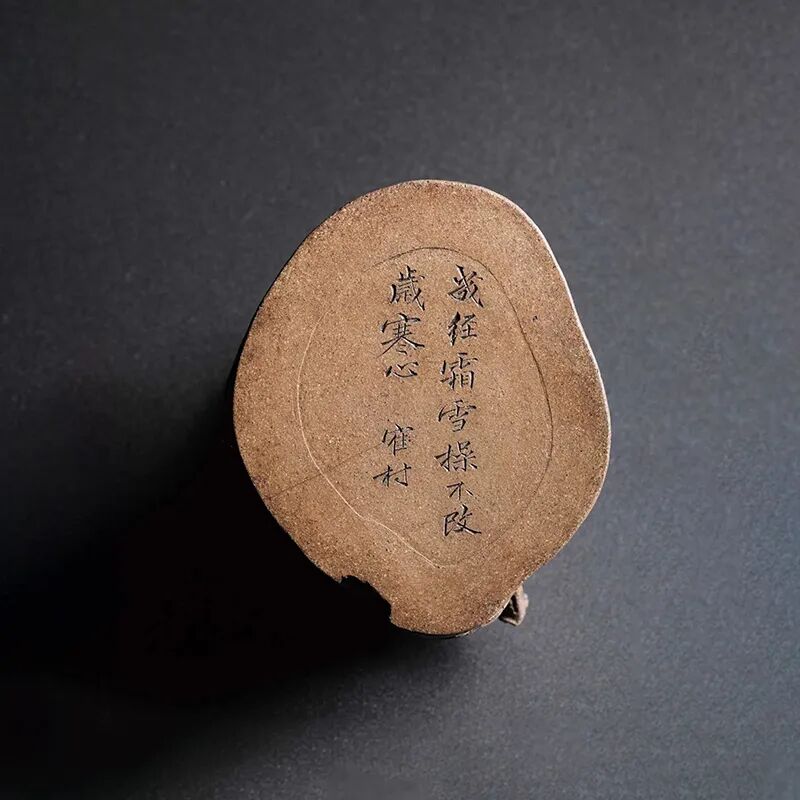 幾经霜雪操不改
歲寒心 隺村